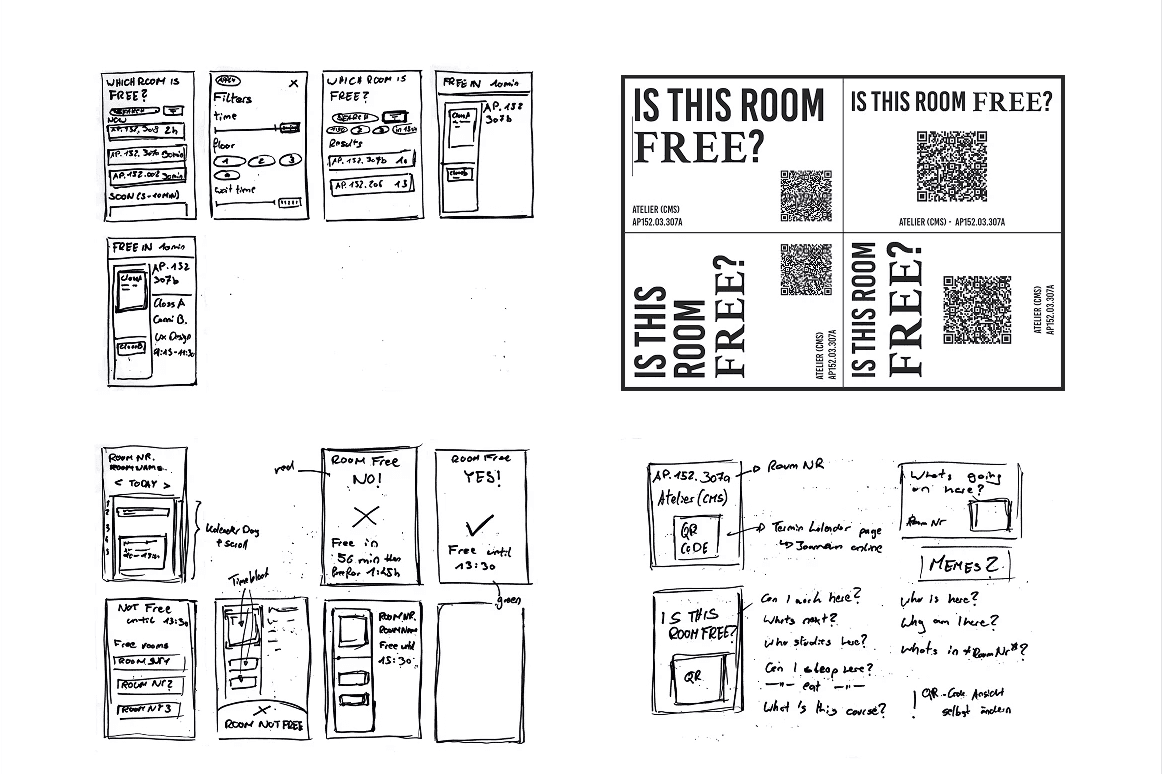 WHICH ROOM IS
FREE?
SEARCH
NOW
AP. 152. 309 2h
AP. 152. 307a 30min
AP. 152. 002 30min
SOON (5-10MIN)
APPLY
X
Filters
time
floor
1 2 3
wait time
WHICH ROOM IS
FREE?
SEARCH
Results
AP. 152. 307b
AP. 152. 206
FREE IN 10min
Class A
AP. 152
307b
Class B
FREE IN 10min
AP. 152
307b
Class A
Class A
Cami B.
Ux Design
Class B
IS THIS ROOM
FREE?
ATELIER (CMS)
AP152.03.307A
IS THIS ROOM FREE?
ATELIER (CMS) - AP152.03.307A
IS THIS
ROOM
FREE?
ATELIER (CMS)
AP152.03.307A
IS THIS ROOM
FREE?
ATELIER (CMS)
AP152.03.307A
ROOM NR.
ROOM NAME.
< TODAY >
Kalender Day
+ scroll
red
ROOM Free
NO!
Free in
56 min then
for 1:45h
ROOM Free
YES!
Free until
13:30
green
NOT Free
until 13:30
Free rooms
ROOM NR 1
ROOM NR 2
ROOM NR 3
Timeblock
ROOM NOT FREE
ROOM NR.
ROOM NAME
Free until
15:30
AP. 152. 307a
Room NR
Atelier (CMS)
QR
CODE
Termin Kalender page
online
What's going
on here?
Room Nr
MEMES?
IS THIS
ROOM FREE?
QR
Can I work here?
Whats next?
Who studies here?
Can I sleep here?
eat
What is this course?
Who is here?
Why am I here?
Whats in *Room Nr*?
! QR-Code Ansicht
selbst ändern